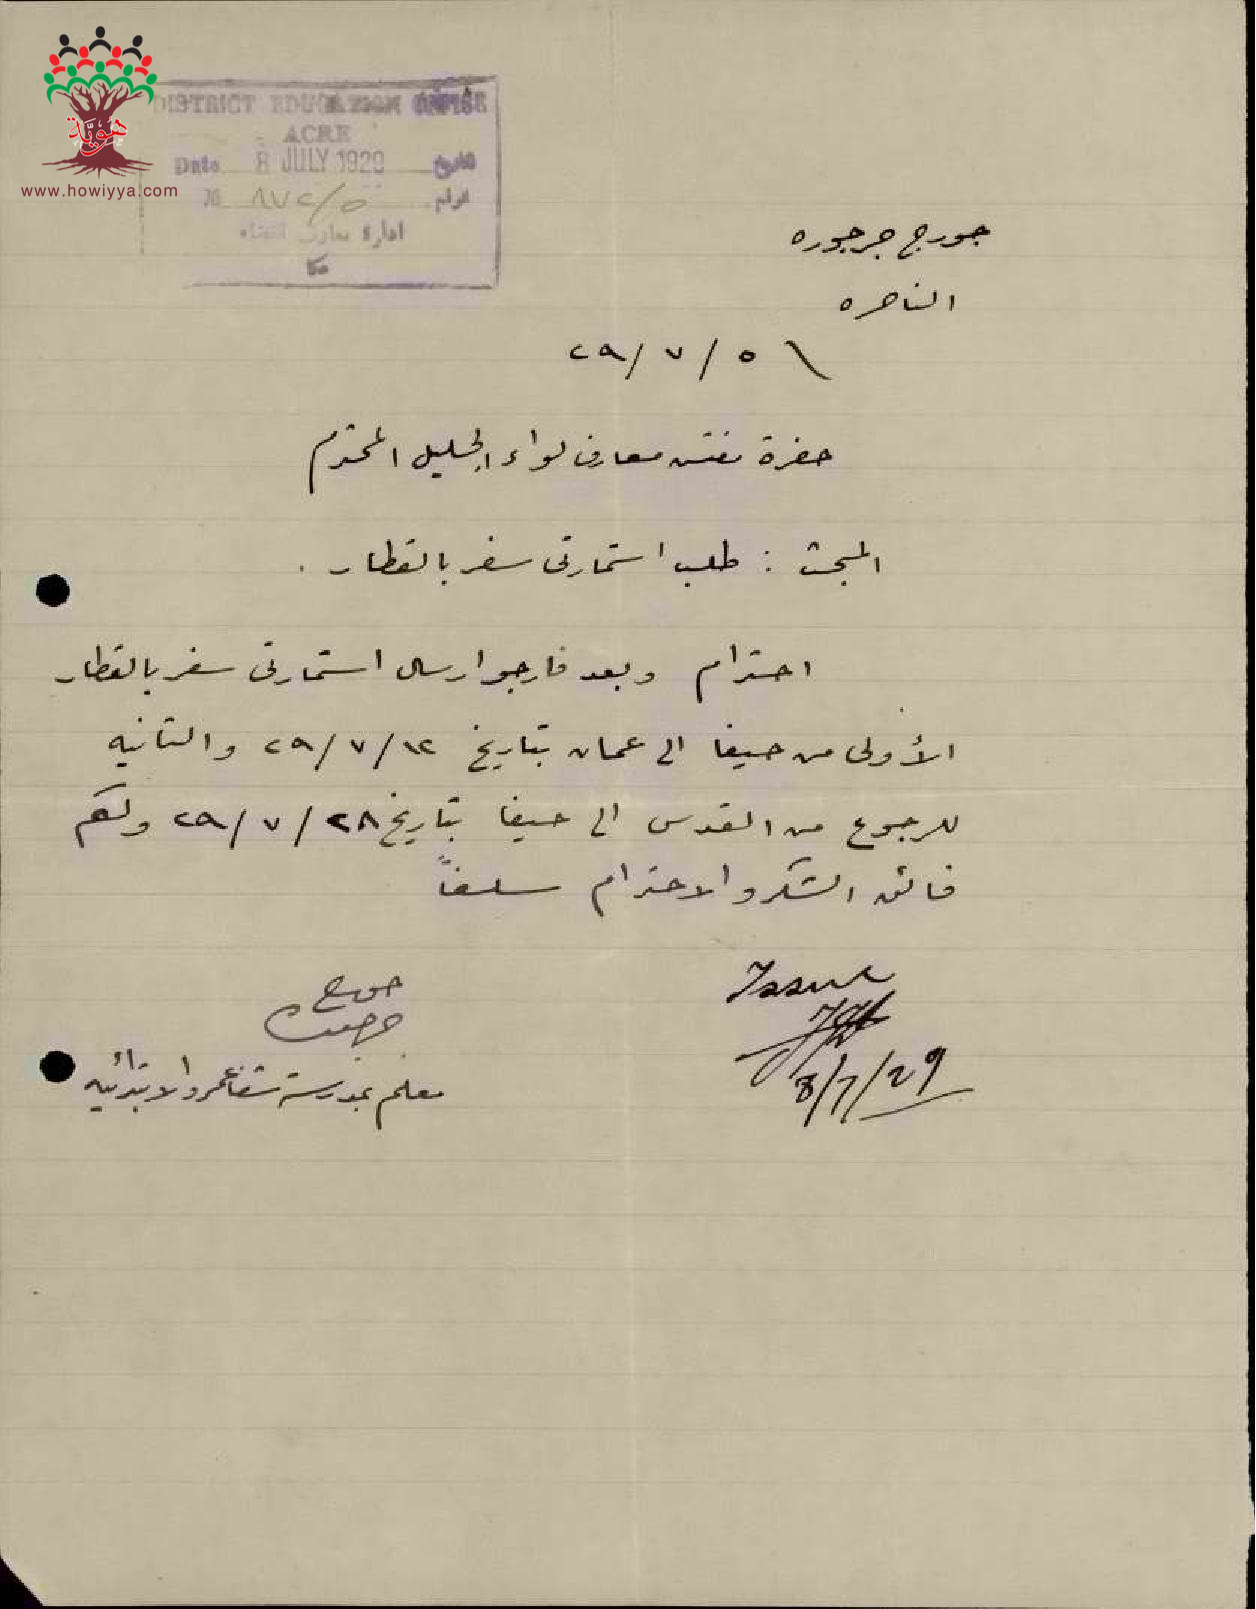 هوية
www.howiyya.com
DISTRICT EDUCATION OFFICE
ACRE
Date 8 JULY 1929 التاريخ
No ٨٧٢/٥ الرقم
ادارة معارف القضاء
عكا
جورج جرجوره
الناصره
٢٩/٧/٥
حضرة مفتش معارف لواء الجليل المحترم
المبحث : طلب استمارتى سفر بالقطار .
احترام وبعد فارجو ارسال استمارتى سفر بالقطار
الأولى من حيفا الى عمان بتاريخ ٢٩/٧/١٢ والثانيه
للرجوع من القدس الى حيفا بتاريخ ٢٩/٧/٢٨ ولكم
فائق الشكر والاحترام سلفاً
Issue
8/7/29
جورج
جرجوره
معلم بمدرسة شفاعمرو الابتدائيه